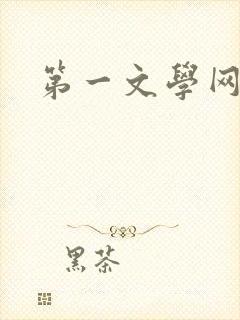 第一文學网
黑茶